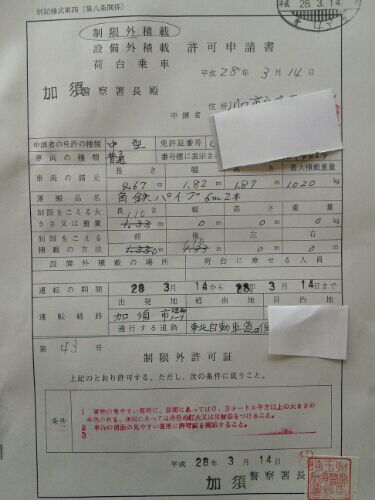 別記様式第四（第八条関係）
平成 28.3.14
制限外積載
設備外積載 許可申請書
荷台乗車
平成28年3月14日
加須警察署長殿
住所
申請者
申請者の免許の種類 中型 免許証番号
車両の種類 普通 番号標に表示さ
車両の諸元 長さ 幅 高さ 最大積載重量
4.67 m 1.82 m 1.87 m 1020 kg
運搬品名 角鉄パイプ6m2本
制限をこえる大きさ又は重量 長さ 幅 高さ 重量
1.33 m 0 m 0 m 0 kg
制限をこえる積載の方法 前 後 左 右
設備外積載の場所 荷台に乗せる人員
運転の期間 28年3月14日から 28年3月14日まで
運転経路 出発地 経由地 目的地
加須市
通行する道路 東北自動車道
第43号
制限外許可証
上記のとおり許可する。ただし、次の条件に従うこと。
条件
1 貨物の見やすい箇所に、昼間にあっては0.3メートル平方以上の大きさの
赤色の布を、夜間にあっては赤色の灯火又は反射器をつけること。
2 車両の前面の見やすい箇所に許可証を掲示すること。
3
平成28年3月14日
加須警察署長